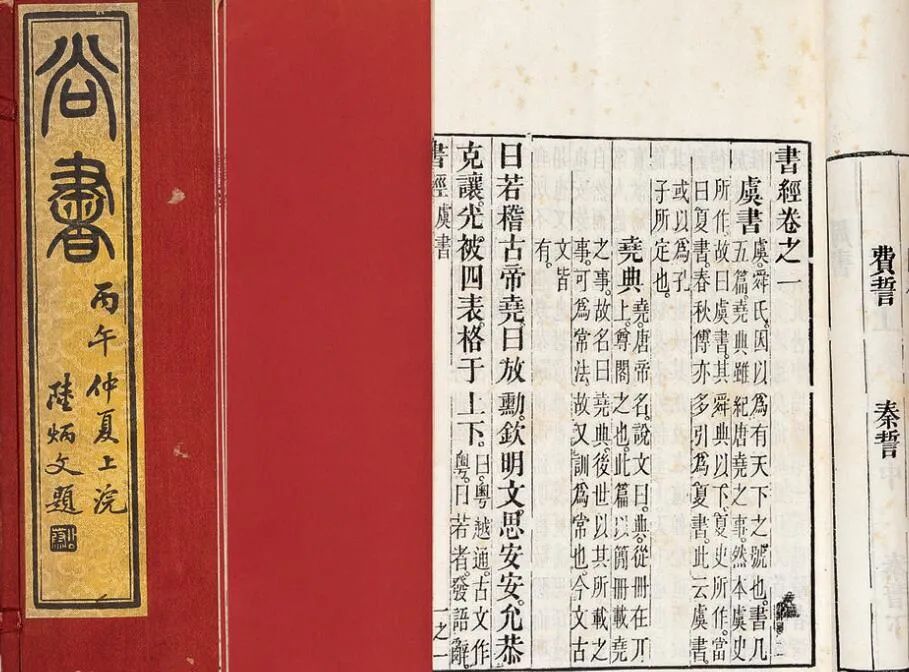 尚書
丙午仲夏上浣
陸炳文題
費誓
秦誓
書經卷之一
虞書 虞。舜氏。因以爲有天下之號也。書凡
五篇。堯典雖紀唐堯之事。然本虞史
所作。故曰虞書。其舜典以下。夏史所作。當
曰夏書。春秋傳亦多引爲夏書。此云虞書
或以爲孔
子所定也。
堯典 堯。唐帝名。說文曰。典。從冊在丌
上。尊閣之也。此篇以簡冊載堯
之事。故名曰堯典。後世以其所載之
事。可爲常法。故又訓爲常也。今文古
文皆
有。
曰若稽古帝堯。曰放勳。欽明文思安安。允恭
克讓。光被四表。格于上下。曰。粵越通。古文作
粵。曰若者。發語辭
書經 虞書 一之一